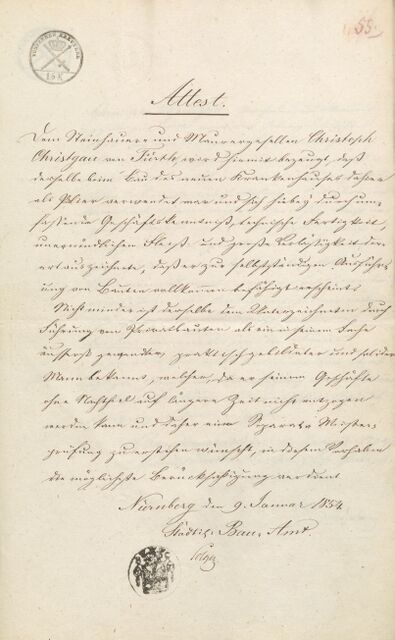 55.
Attest.
Dem Steinhauer- und Maurergesellen Christoph
Christgau von Fürth, wird hiermit bezeugt, daß
derselbe beim Bau des neuen Krankenhauses dahier
als Polier verwendet war und sich hiebei durch um-
fassende Geschäftskenntniß, technische Fertigkeit,
unermüdlichen Fleiß und große Verlässigkeit der-
art auszeichnete, daß er zur selbstständigen Ausführ-
ung von Bauten vollkommen befähigt erscheint.
Nicht minder ist derselbe dem Unterzeichneten durch
Führung von Privatbauten als ein in seinem Fache
äußerst gewandter, praktisch gebildeter und solider
Mann bekannt, welcher, da er seinem Geschäfte
ohne Nachtheil auf längere Zeit nicht entzogen
werden kann und daher eine Separat- Meister-
prüfung zu erstehen wünscht, in diesem Vorhaben
die möglichste Berücksichtigung verdient.
Nürnberg den 9. Januar 1854.
Städtisch. Bau-Amt.
Solger